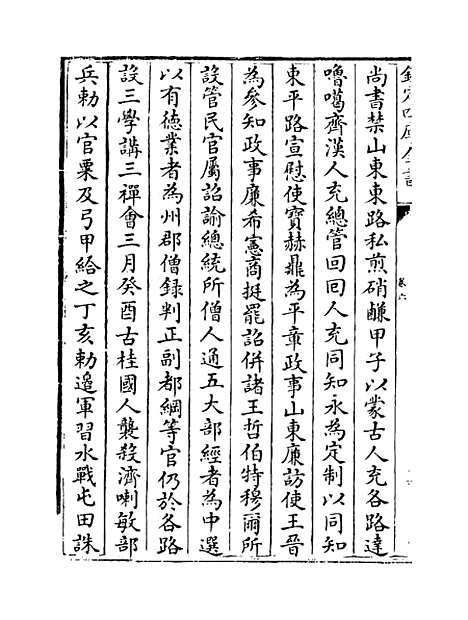 欽定四庫全書
卷六
尚書禁山東東路私煎硝鹻甲子以蒙古人充各路達
嚕噶齊漢人充總管回回人充同知永為定制以同知
東平路宣慰使寶赫鼎為平章政事山東廉訪使王晉
為參知政事廉希憲商挺罷詔併諸王哲伯特穆爾所
設管民官屬詔諭總統所僧人通五大部經者為中選
以有徳業者為州郡僧録判正副都綱等官仍於各路
設三學講三禪會三月癸酉古桂國人襲殺濟喇敏部
兵勅以官粟及弓甲給之丁亥勅邉軍習水戰屯田誅